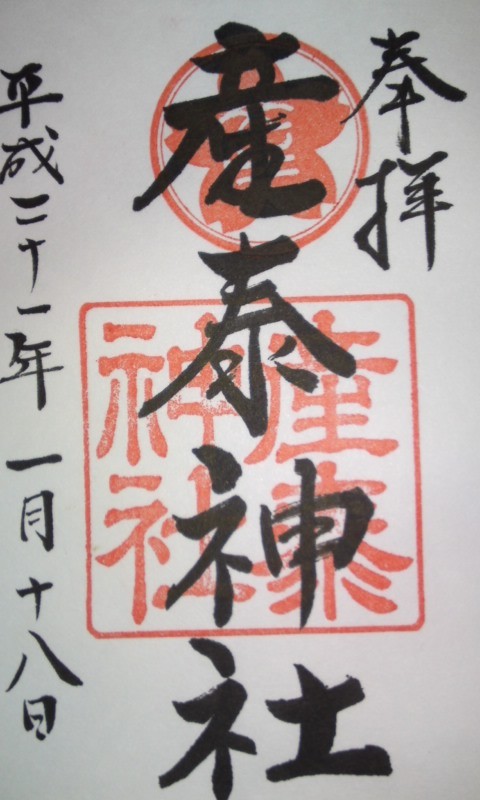 奉拝
産泰神社
産泰
神社
平成二十一年一月十八日